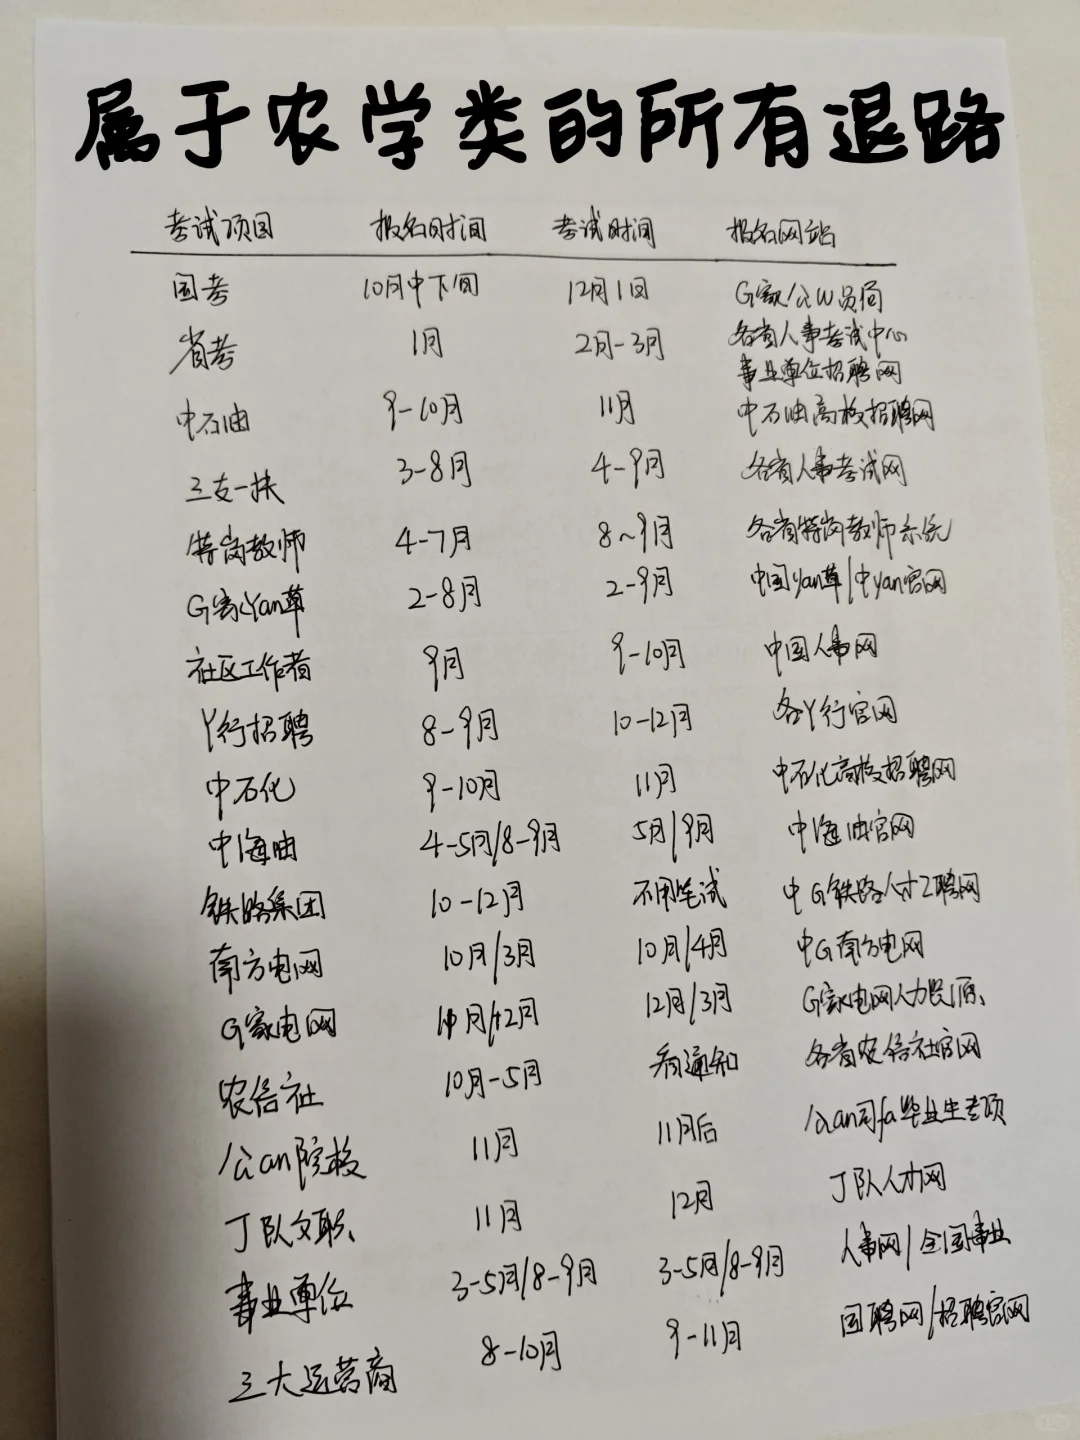 属于农学类的所有退路
考试项目 报名时间 考试时间 报名网站
国考 10月中下旬 12月1日 G家公W员局
省考 1月 2月-3月 各省人事考试中心
事业单位招聘网
中石油 9-10月 11月 中石油高校招聘网
三支一扶 3-8月 4-9月 各省人事考试网
特岗教师 4-7月 8~9月 各省特岗教师系统
G家Yan草 2-8月 2-9月 中国Yan草/中Yan官网
社区工作者 9月 9-10月 中国人事网
Y行招聘 8-9月 10-12月 各Y行官网
中石化 9-10月 11月 中石化高校招聘网
中海油 4-5月/8-9月 5月/9月 中海油官网
铁路集团 10-12月 不用笔试 中G铁路人才招聘网
南方电网 10月/3月 10月/4月 中G南方电网
G家电网 月/12月 12月/3月 G家电网人力资源、
农信社 10月-5月 看通知 各省农信社官网
公an院校 11月 11月后 公an司fa毕业生专项
J队文职、 11月 12月 J队人才网
事业单位 3-5月/8-9月 3-5月/8-9月 人事网/全国事业
三大运营商 8-10月 9-11月 国聘网/招聘官网